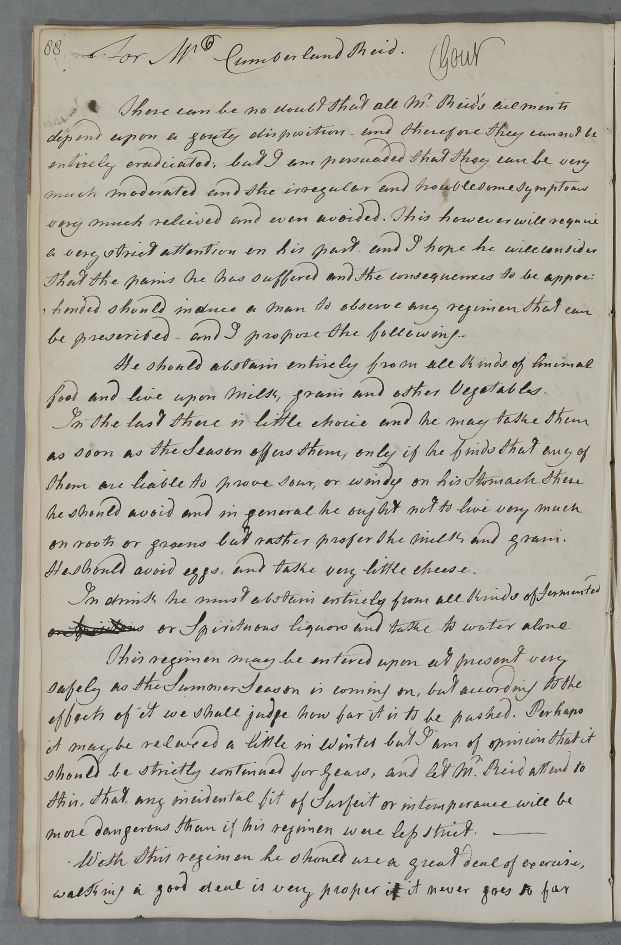 88
For Mr. Cumberland Reid.
Gout
There can be no doubt that all Mr. Reid's ailments
depend upon a gouty disposition - and therefore they cannot be
entirely eradicated, but I am persuaded that they can be very
much moderated and the irregular and troublesome symptoms
very much relieved and even avoided. This however will require
a very strict attention on his part and I hope he will consider
that the pains he has suffered and the consequences to be appre:
:hended should induce a man to observe any regimen that can
be prescribed - and I propose the following.
He should abstain entirely from all kinds of Animal
food and live upon Milk, grain and other Vegetables
In the last there is little choice and he may take them
as soon as the Season offers them, only if he finds that any of
them are liable to prove sour, or windy on his Stomach these
he should avoid and in general he ought not to live very much
on roots or greens but rather prefer the milk and grain.
He should avoid eggs, and take very little cheese.
In drink he must abstain entirely from all kinds of fermented
or Spirituous liquors and take to water alone
This regimen may be entered upon at present very
safely as the Summer Season is coming on, but according to the
effects of it we shall judge how far it is to be pushed. Perhaps
it may be relaxed a little in Winter but I am of opinion that it
should be strictly continued for years, and let Mr. Reid attend to
this, that any incidental fit of Surfeit or intemperance will be
more dangerous than if his regimen were less strict.
With this regimen he should use a great deal of exercise,
walking a good deal is very proper if it never goes so far